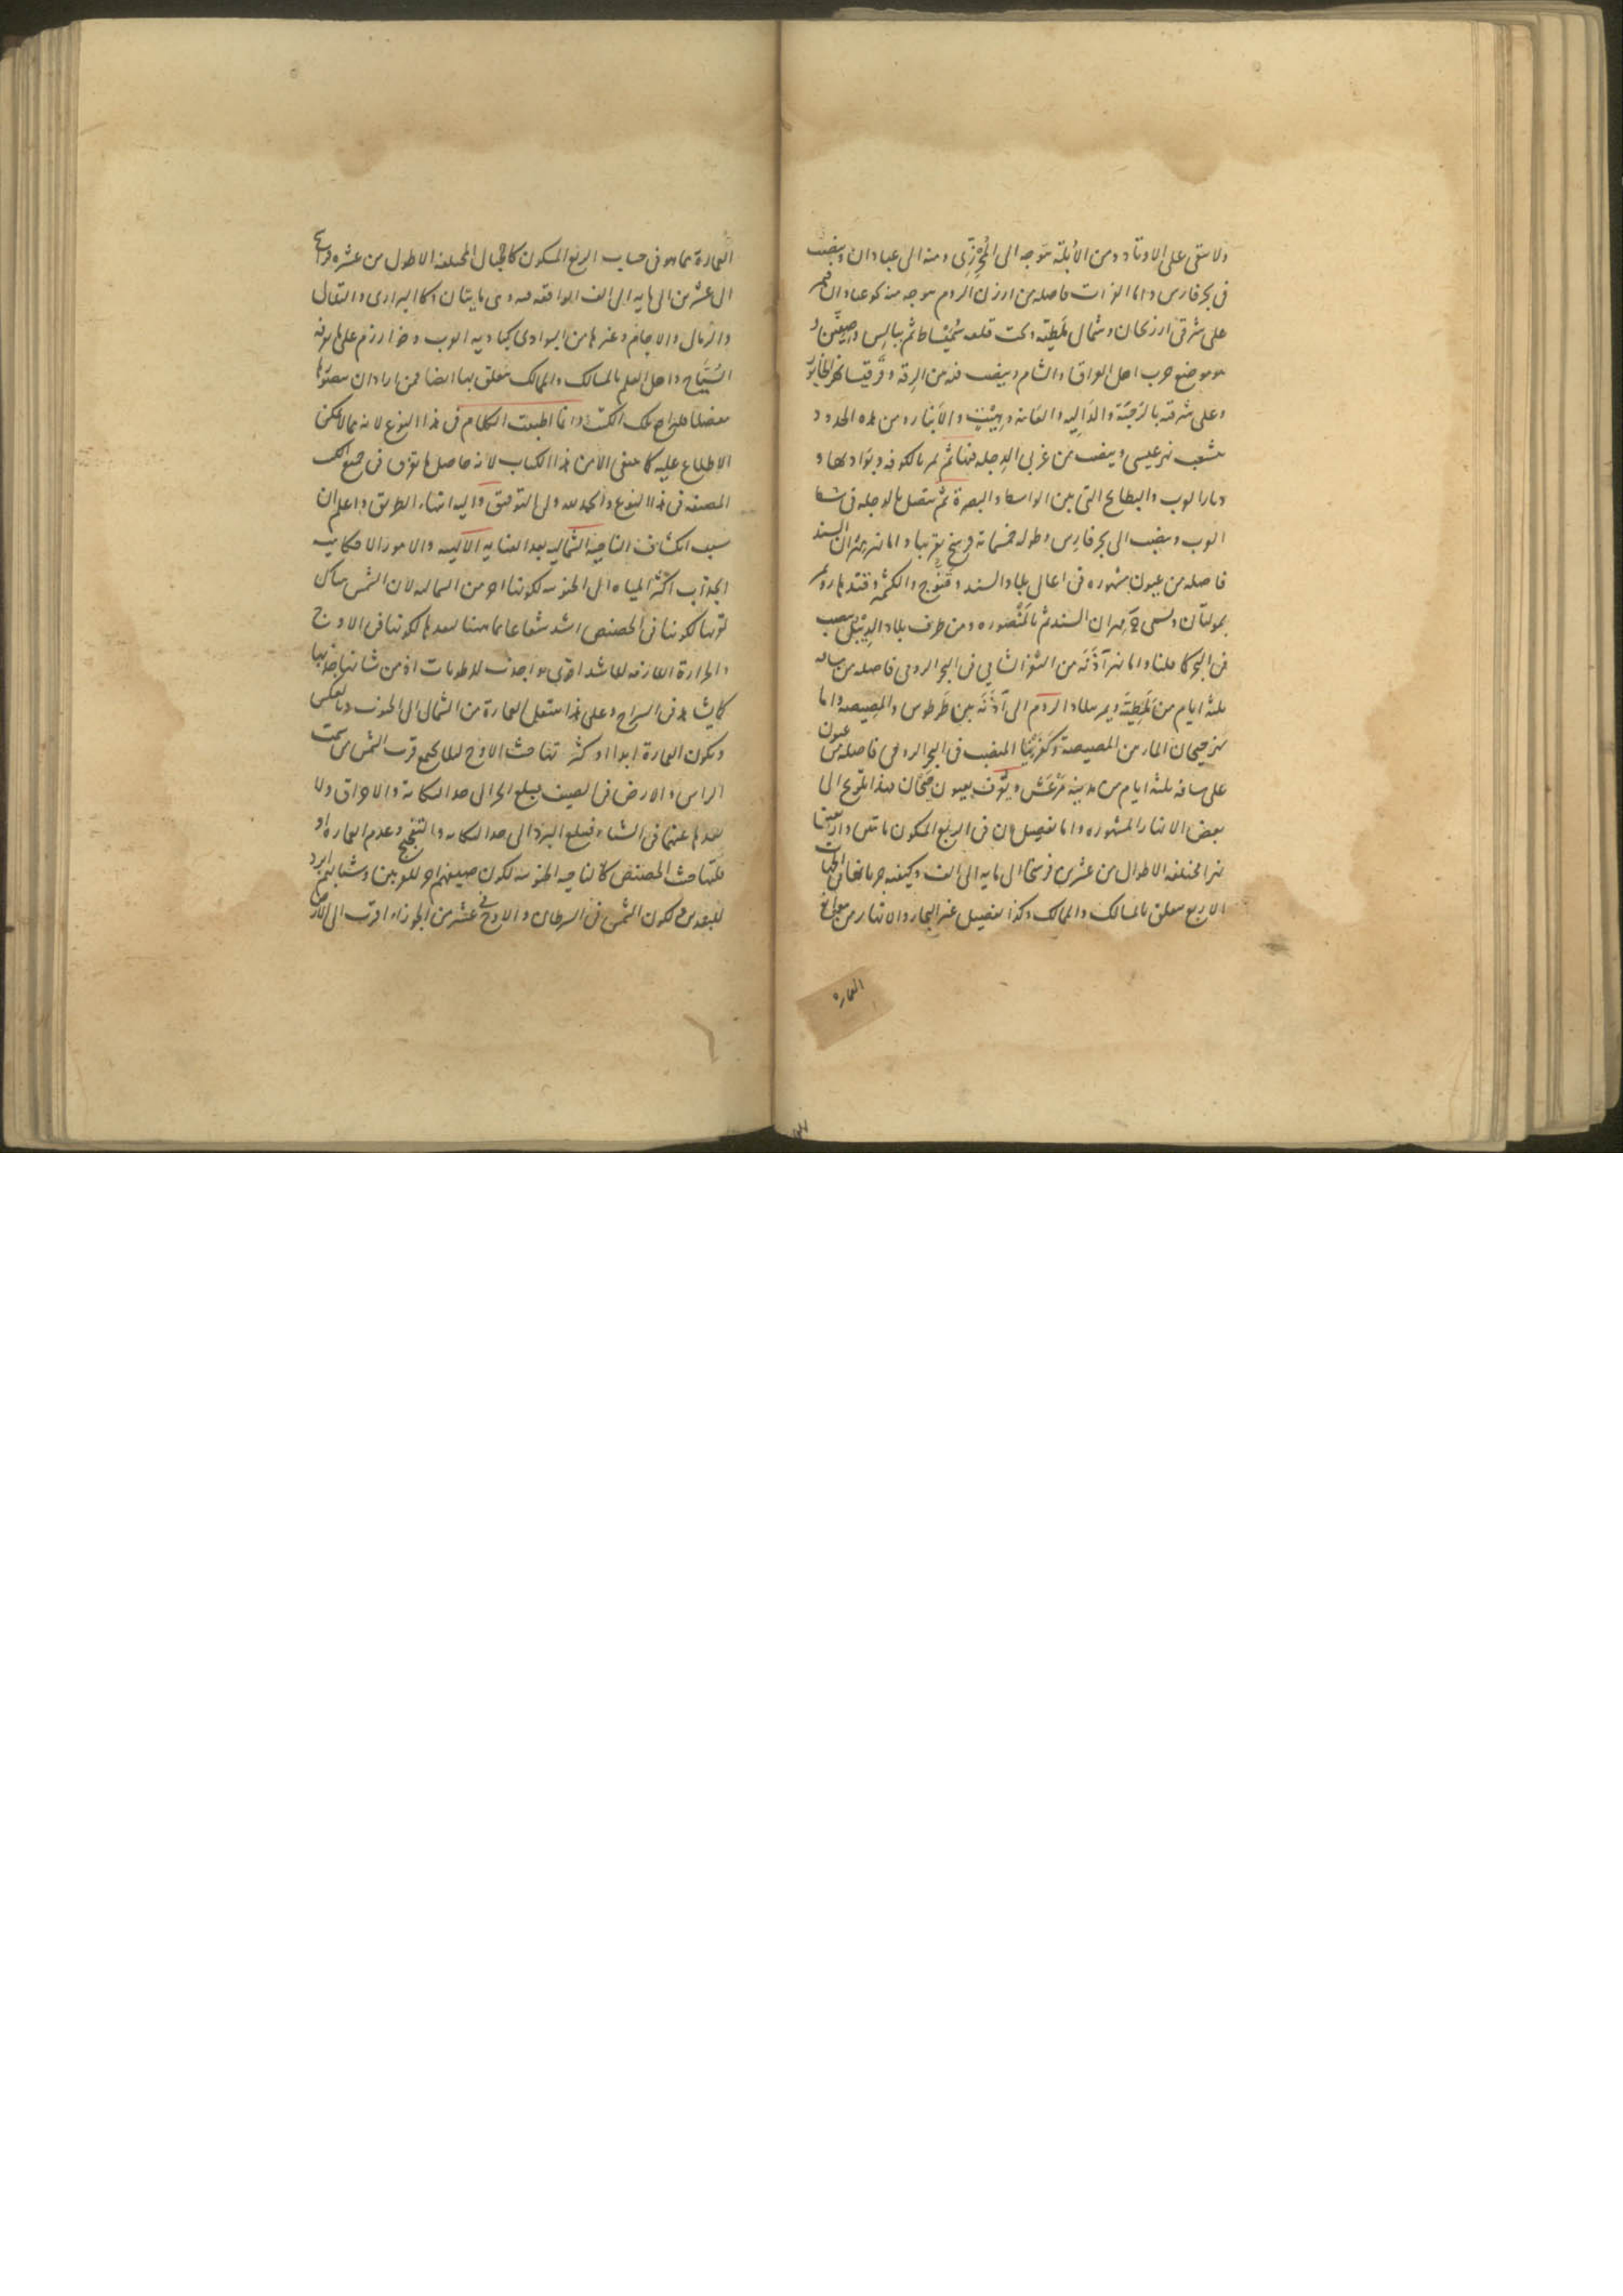 ولا سقى على الاوتاد ومن الأبلة توجه الى المحرزى ومنه الى عبادان وينصب
فى بحر فارس واما الفرات فاصله من ارزن الروم متوجه منه نحو عبادان فيمر
على شرقى ارزنجان وشمال ملطية وتحت قلعه شميشاط ثم ببالس وصفين و
هو موضع حرب اهل العراق والشام وينصب فيه من الرقه وقرقيسا نهر الخابور
وعلى شرقيه بالرحبة والداليه والعانه وهيت والأنبار ومن هذه الحدود
ينشعب نهر عيسى وينصب من غربى الدجله فيها ثم يمر بالكوفه وبواديها و
ديار العرب والبطايح التى بين الواسط والبصرة ثم يتصل بالدجله فى شط
العرب وينصب الى بحر فارس وطوله خمسمائة فرسخ تقريبا واما نهر مهران السند
فاصله من عيون مشهوره فى اعالى بلاد السند وقنوج والكشمير وقندهار ويمر
بمولتان ويسمى مهران السند ثم بالمنصوره ومن طرف بلاد الديبل ينصب
فى البحر كما قلنا واما نهر آذنه من الثغر الشامى فى البحر الرومى فاصله من مسافه
ثلثه ايام من ملطية ويمر ببلاد الروم الى آذنه بين طرطوس والمصيصه واما
نهر جيحان المار من المصيصة وكفربيا المنصب فى البحر الرومى فاصله من عيون
على مسافه ثلثه ايام من مدينه مرعش ويعرف بعيون جيحان فهذا تلويح الى
بعض الانهار المشهوره واما تفصيل ان فى الربع المسكون مائتين واربعين
نهرا مختلفه الاطوال من عشرين فرسخا الى مايه الى الف وكيفيه جريانها فى الجهات
الاربع متعلق بالمسالك والممالك وكذا تفصيل غير البحار والانهار من مواقع
العماره
العمارة مما هو فى حساب الربع المسكون كالجبال المختلفه الاطول من عشره فراسخ
الى عشرين الى مايه الى الف الواقعه فيه وهى مايتان وكالبرارى والتلال
والرمال والاجام وغيرها من البوادى كباديه العرب وخوارزم على ما عرفه
السياح واهل العلم بالمسالك والممالك متعلق بها ايضا فمن اراد ان يعرفها
مفصلا فليراجع تلك الكتب وانما اطنبت الكلام فى هذا النوع لانه مما لا يمكن
الاطلاع عليه كما ينبغى الا من هذا الكتاب لانه حاصل ما تفرق فى جميع الكتب
المصنفه فى هذا النوع والحمد لله ولى التوفيق واليه انتهاء الطريق واعلم ان
سبب انكشاف الناحية الشماليه بعد العنايه الالهيه والامور الافلاكيه
انجذاب اكثر المياه الى الجنوبيه لكونها احر من الشماليه لان الشمس يكون
قربها لكونها فى الحضيض اشد شعاعا مما هنا لبعدها لكونها فى الاوج
والحرارة اللازمه للاشد اقوى واجذب للرطوبات اذ من شانها جذبها
كما يشاهد فى السراج وعلى هذا ينتقل العمارة من الشمال الى الجنوب وبالعكس
ويكون العمارة ابدا اذ كثر تفاحش الاوج لئلا يجتمع قرب الشمس من سمت
الراس والارض فى الصيف فيبلغ الحر الى حد النكايه والاحراق ولا
بعدها عنهما فى الشتاء فيبلغ البرد الى حد النكايه والتفجيج وعدم العماره او
فلتفاحش الحضيض كالناحيه الجنوبيه لكون صيفهم احر للقربين وشتاهم ابرد
للبعدين ولكون الشمس فى السرطان والاوج فى عشر من الجوزاء اقرب الى الارض